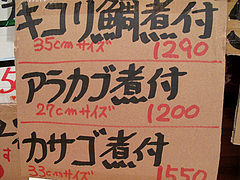 キコリ鯛煮付
35cmサイズ 1290
アラカゴ煮付
27cmサイズ 1200
カサゴ煮付
33cmサイズ 1550